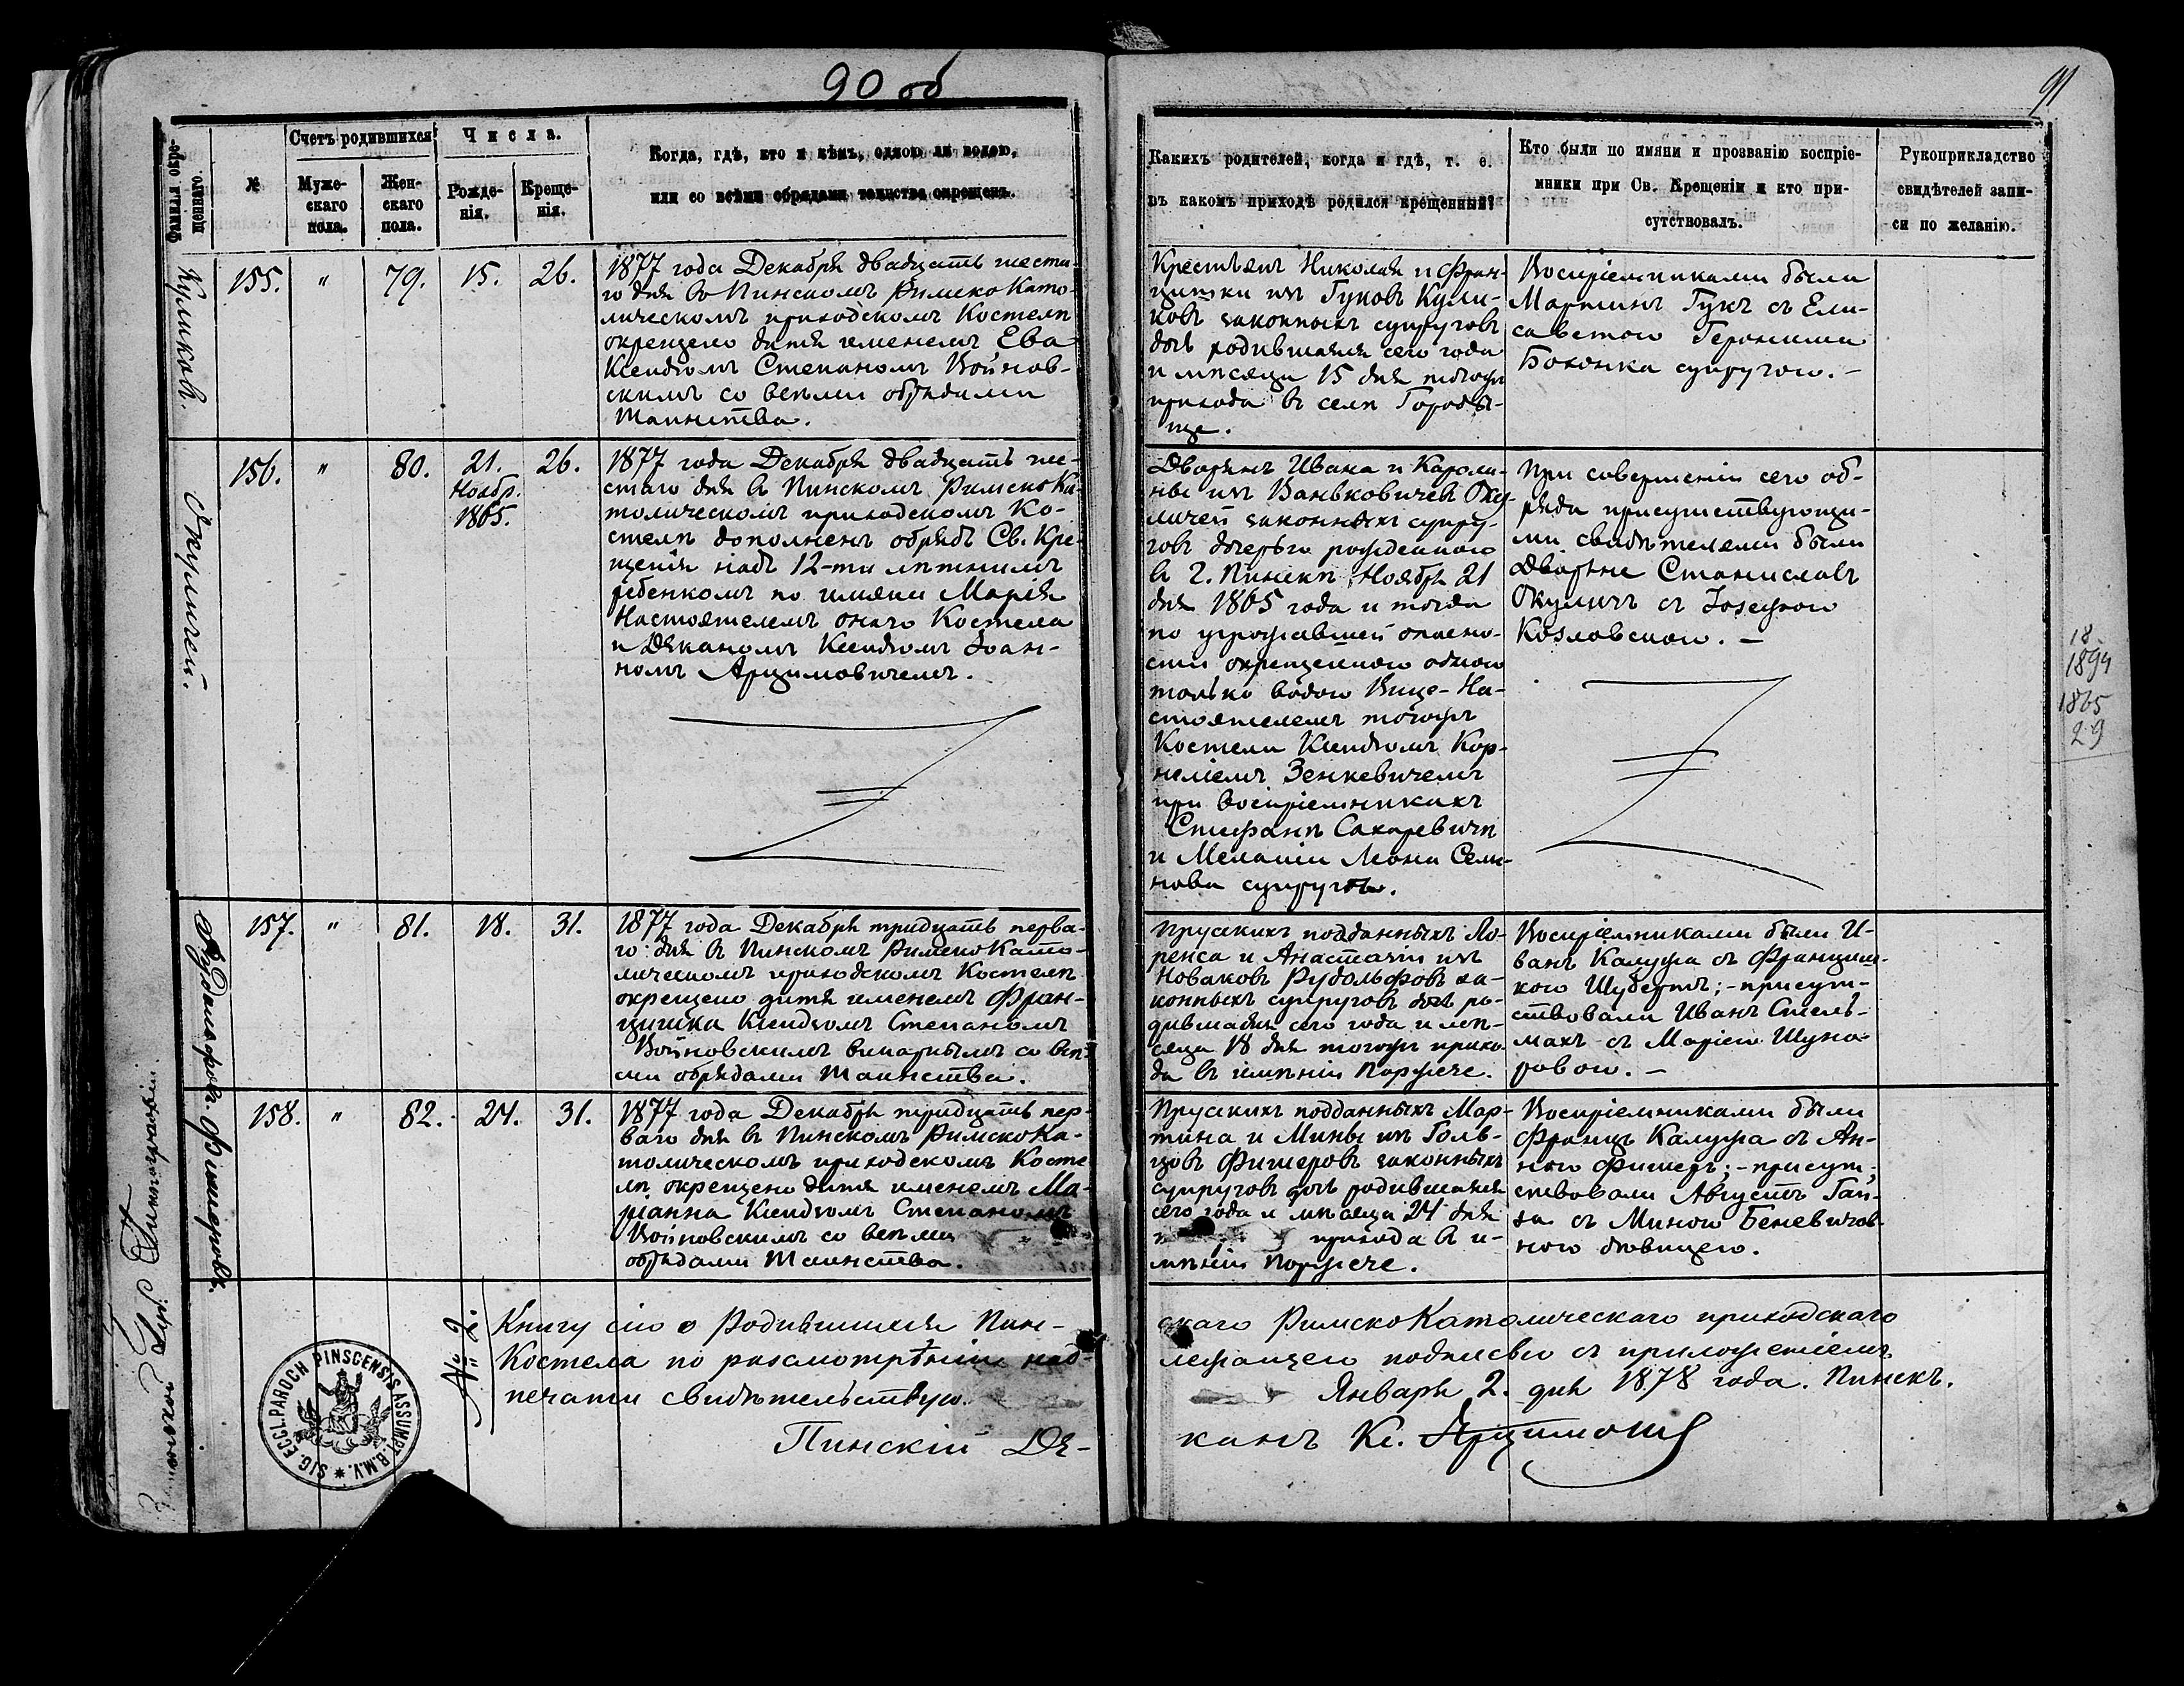 90 об
91
Фамилія окре-
щеннаго.
№
Счетъ родившихся
Муже-
скаго
пола.
Жен-
скаго
пола.
Числа.
Рожде-
нія.
Креще-
нія.
Когда, гдѣ, кто и кѣмъ, одною ли водою,
или со всѣми обрядами таинства окрещенъ.
Какихъ родителей, когда и гдѣ, т. е.
въ какомъ приходѣ родился крещенный?
Кто были по имяни и прозванію воспріе-
мники при Св. Крещеніи и кто при-
сутствовалъ.
Рукоприкладство
свидѣтелей запи-
си по желанію.
Куликовъ.
155. " 79. 15. 26.
1877 года Декабря двадцать шеста-
го дня въ Пинскомъ Римско Като-
лическомъ приходскомъ Костелѣ
окрещено дитя именемъ Ева
Ксендзомъ Степаномъ Войнов-
скимъ со всѣми обрядами
Таинства.
Крестьянъ Николая и Фран-
цишки изъ Гуковъ Кули-
ковъ законныхъ супруговъ
дочь родившаяся сего года
и мѣсяца 15 дня тогожъ
прихода въ селѣ Городи-
ще.
Воспріемниками были
Мартинъ Гукъ съ Ели-
саветою Геронима
супругою. –
Окуличей.
156. " 80. 21. 26.
Ноябр.
1865.
1877 года Декабря двадцать ше-
стаго дня въ Пинскомъ Римско Ка-
толическомъ приходскомъ Ко-
стелѣ дополненъ обрядъ Св. Кре-
щенія надъ 12-ти лѣтнимъ
ребенкомъ по имяни Марія
Настоятелемъ онаго Костела
и Деканомъ Ксендзомъ Іоан-
номъ Арцимовичемъ.
Дворянъ Ивана и Кароли-
ны изъ Ваньковичей Оку-
личей законныхъ супру-
говъ дочерью рожденною
въ г. Пинскѣ Ноября 21
дня 1865 года и тогда
по угрожавшей опасно-
сти окрещенною одною
только водою Вице-На-
стоятелемъ тогожъ
Костела Ксендзомъ Кор-
неліемъ Зенкевичемъ
при воспріемникахъ
Стефанѣ Сахаревичѣ
и Меланіи Леона
супруговъ.
При совершеніи сего об-
ряда присутствующи-
ми свидѣтелями были
Дворяне Станиславъ
Окуличъ съ Іозефою
Козловскою. –
18
1894
1865
29
Рудольфовъ
157. " 81. 18. 31.
1877 года Декабря тридцать перва-
го дня въ Пинскомъ Римско Като-
лическомъ приходскомъ Костелѣ
окрещено дитя именемъ Фран-
цишка Ксендзомъ Степаномъ
Войновскимъ викарнымъ со всѣ-
ми обрядами Таинства.
Прусскихъ подданныхъ Ло-
ренса и Анастасіи изъ
Новаковъ Рудольфовъ за-
конныхъ супруговъ дочь ро-
дившаяся сего года и мѣ-
сяца 18 дня тогожъ прихо-
да въ имѣніи Поржече.
Воспріемниками были И-
ванъ Калужа съ Францишк-
кою Шубертъ; – присут-
ствовали Иванъ Стель-
махъ съ Маріею
Фишеровъ.
158. " 82. 24. 31.
1877 года Декабря тридцать пер-
ваго дня въ Пинскомъ Римско Ка-
толическомъ приходскомъ Косте
лѣ окрещено дитя именемъ Ма-
ріанна Ксендзомъ Степаномъ
Войновскимъ со всѣми
обрядами Таинства.
Прусскихъ подданныхъ Мар-
тина и Мины изъ Голь-
цовъ Фишеровъ законныхъ
супруговъ дочь родившаяся
сего года и мѣсяца 24 дня
прихода въ и-
мѣніи Поржече.
Воспріемниками были
Францъ Калужа съ Ан-
ною Фишеръ; – присут-
ствовали Августъ
съ Миною Беневичов-
ною дѣвицею.
№ 2.
Книгу сію о Родившихся Пин-
скаго Римско Католическаго приходскаго
Костела по разсмотрѣніи над-
лежащею подписью съ приложеніемъ
печати свидѣтельствую.
Января 2. дня 1878 года. Пинскъ.
Пинскій Де-
канъ Кс. Арцимович
SIG. ECCL. PAROCH PINSCENSIS ASSUMPT. B.M.V.